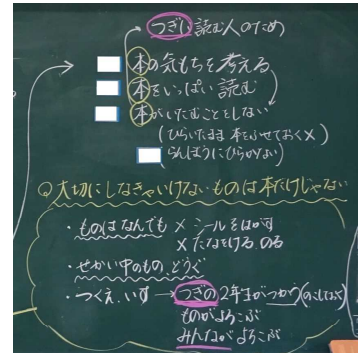 つぎに読む人のため
本の気もちを考える
本をいっぱい読む
本がいたむことをしない
(ひらいたまま 本をふせておく×
らんぼうにひらかない)
Q大切にしなきゃいけないものは本だけじゃない
・ものはなんでも × シールをはがす
× たなをける、のる
・せかい中のもの、どうぐ
・つくえ、いす → つぎの2年生がつかう
ものがよろこぶ
みんながよろこぶ